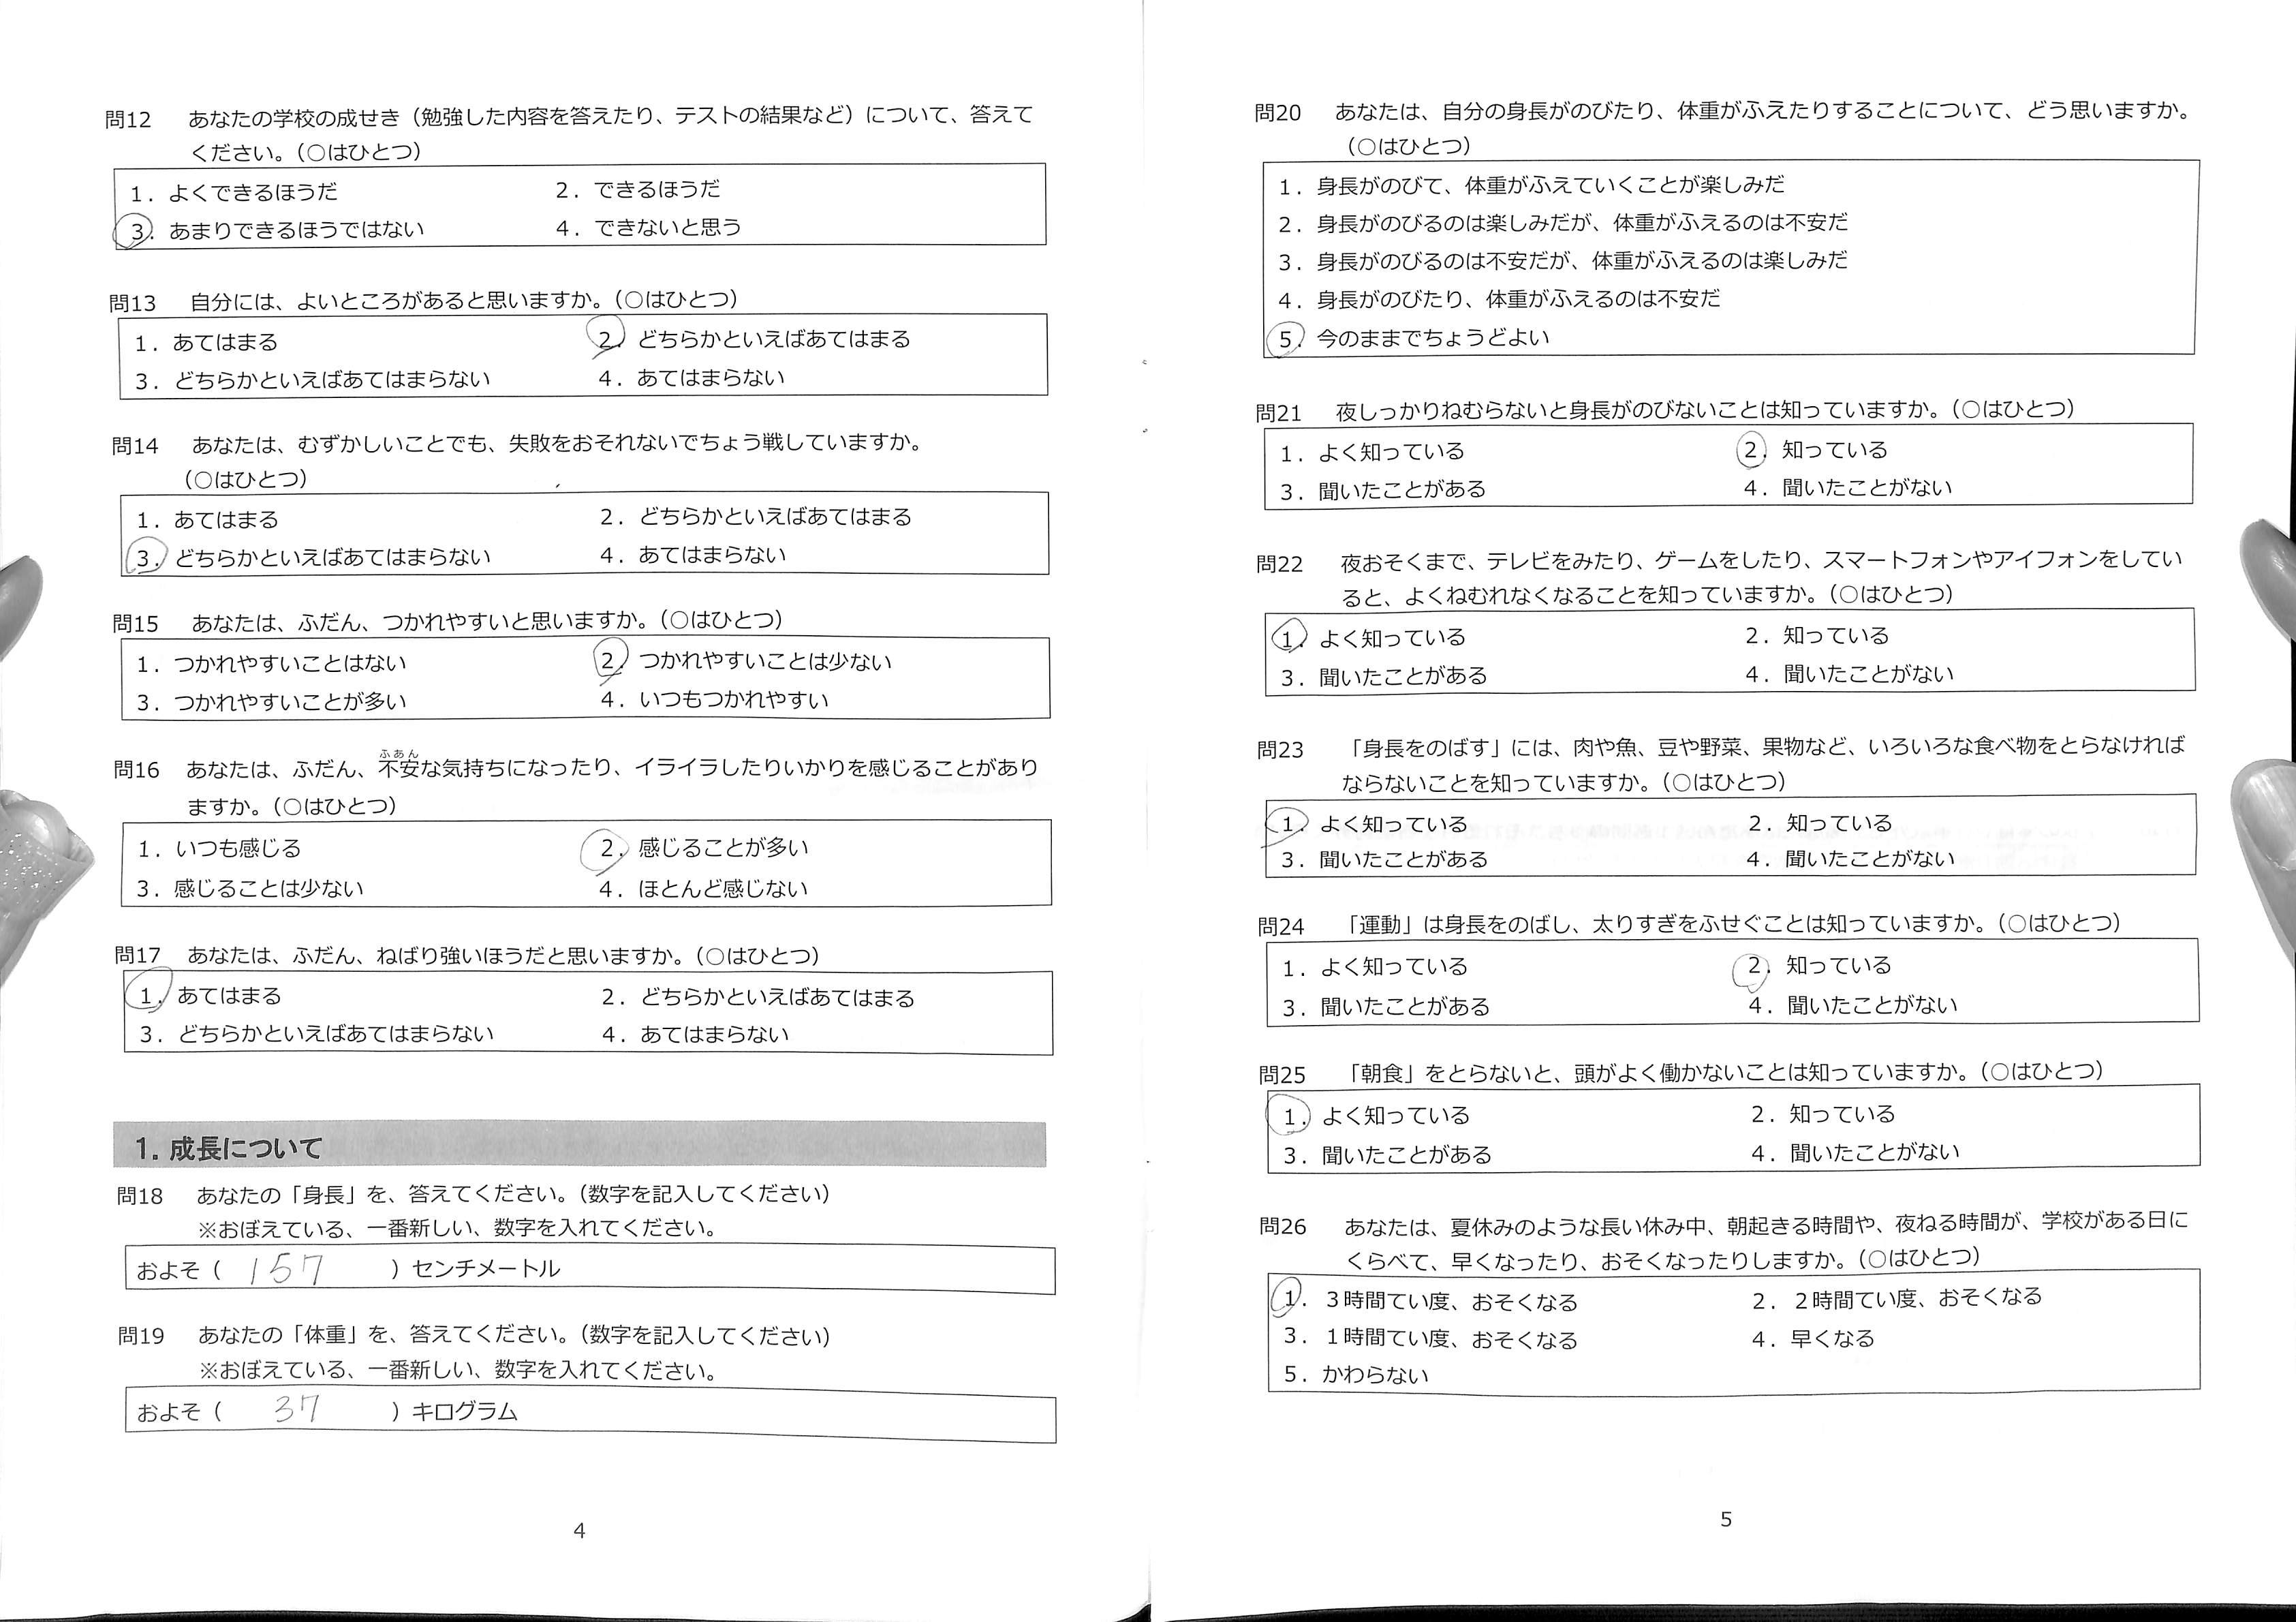 問12 あなたの学校の成せき（勉強した内容を答えたり、テストの結果など）について、答えて
ください。（○はひとつ）
1．よくできるほうだ 2．できるほうだ
3．あまりできるほうではない 4．できないと思う
問13 自分には、よいところがあると思いますか。（○はひとつ）
1．あてはまる 2．どちらかといえばあてはまる
3．どちらかといえばあてはまらない 4．あてはまらない
問14 あなたは、むずかしいことでも、失敗をおそれないでちょう戦していますか。
（○はひとつ）
1．あてはまる 2．どちらかといえばあてはまる
3．どちらかといえばあてはまらない 4．あてはまらない
問15 あなたは、ふだん、つかれやすいと思いますか。（○はひとつ）
1．つかれやすいことはない 2．つかれやすいことは少ない
3．つかれやすいことが多い 4．いつもつかれやすい
ふあん
問16 あなたは、ふだん、不安な気持ちになったり、イライラしたりいかりを感じることがあり
ますか。（○はひとつ）
1．いつも感じる 2．感じることが多い
3．感じることは少ない 4．ほとんど感じない
問17 あなたは、ふだん、ねばり強いほうだと思いますか。（○はひとつ）
1．あてはまる 2．どちらかといえばあてはまる
3．どちらかといえばあてはまらない 4．あてはまらない
1. 成長について
問18 あなたの「身長」を、答えてください。（数字を記入してください）
※おぼえている、一番新しい、数字を入れてください。
およそ（ 157 ）センチメートル
問19 あなたの「体重」を、答えてください。（数字を記入してください）
※おぼえている、一番新しい、数字を入れてください。
およそ（ 37 ）キログラム
4
問20 あなたは、自分の身長がのびたり、体重がふえたりすることについて、どう思いますか。
（○はひとつ）
1．身長がのびて、体重がふえていくことが楽しみだ
2．身長がのびるのは楽しみだが、体重がふえるのは不安だ
3．身長がのびるのは不安だが、体重がふえるのは楽しみだ
4．身長がのびたり、体重がふえるのは不安だ
5．今のままでちょうどよい
問21 夜しっかりねむらないと身長がのびないことは知っていますか。（○はひとつ）
1．よく知っている 2．知っている
3．聞いたことがある 4．聞いたことがない
問22 夜おそくまで、テレビをみたり、ゲームをしたり、スマートフォンやアイフォンをしてい
ると、よくねむれなくなることを知っていますか。（○はひとつ）
1．よく知っている 2．知っている
3．聞いたことがある 4．聞いたことがない
問23 「身長をのばす」には、肉や魚、豆や野菜、果物など、いろいろな食べ物をとらなければ
ならないことを知っていますか。（○はひとつ）
1．よく知っている 2．知っている
3．聞いたことがある 4．聞いたことがない
問24 「運動」は身長をのばし、太りすぎをふせぐことは知っていますか。（○はひとつ）
1．よく知っている 2．知っている
3．聞いたことがある 4．聞いたことがない
問25 「朝食」をとらないと、頭がよく働かないことは知っていますか。（○はひとつ）
1．よく知っている 2．知っている
3．聞いたことがある 4．聞いたことがない
問26 あなたは、夏休みのような長い休み中、朝起きる時間や、夜ねる時間が、学校がある日に
くらべて、早くなったり、おそくなったりしますか。（○はひとつ）
1．３時間てい度、おそくなる 2．２時間てい度、おそくなる
3．１時間てい度、おそくなる 4．早くなる
5．かわらない
5